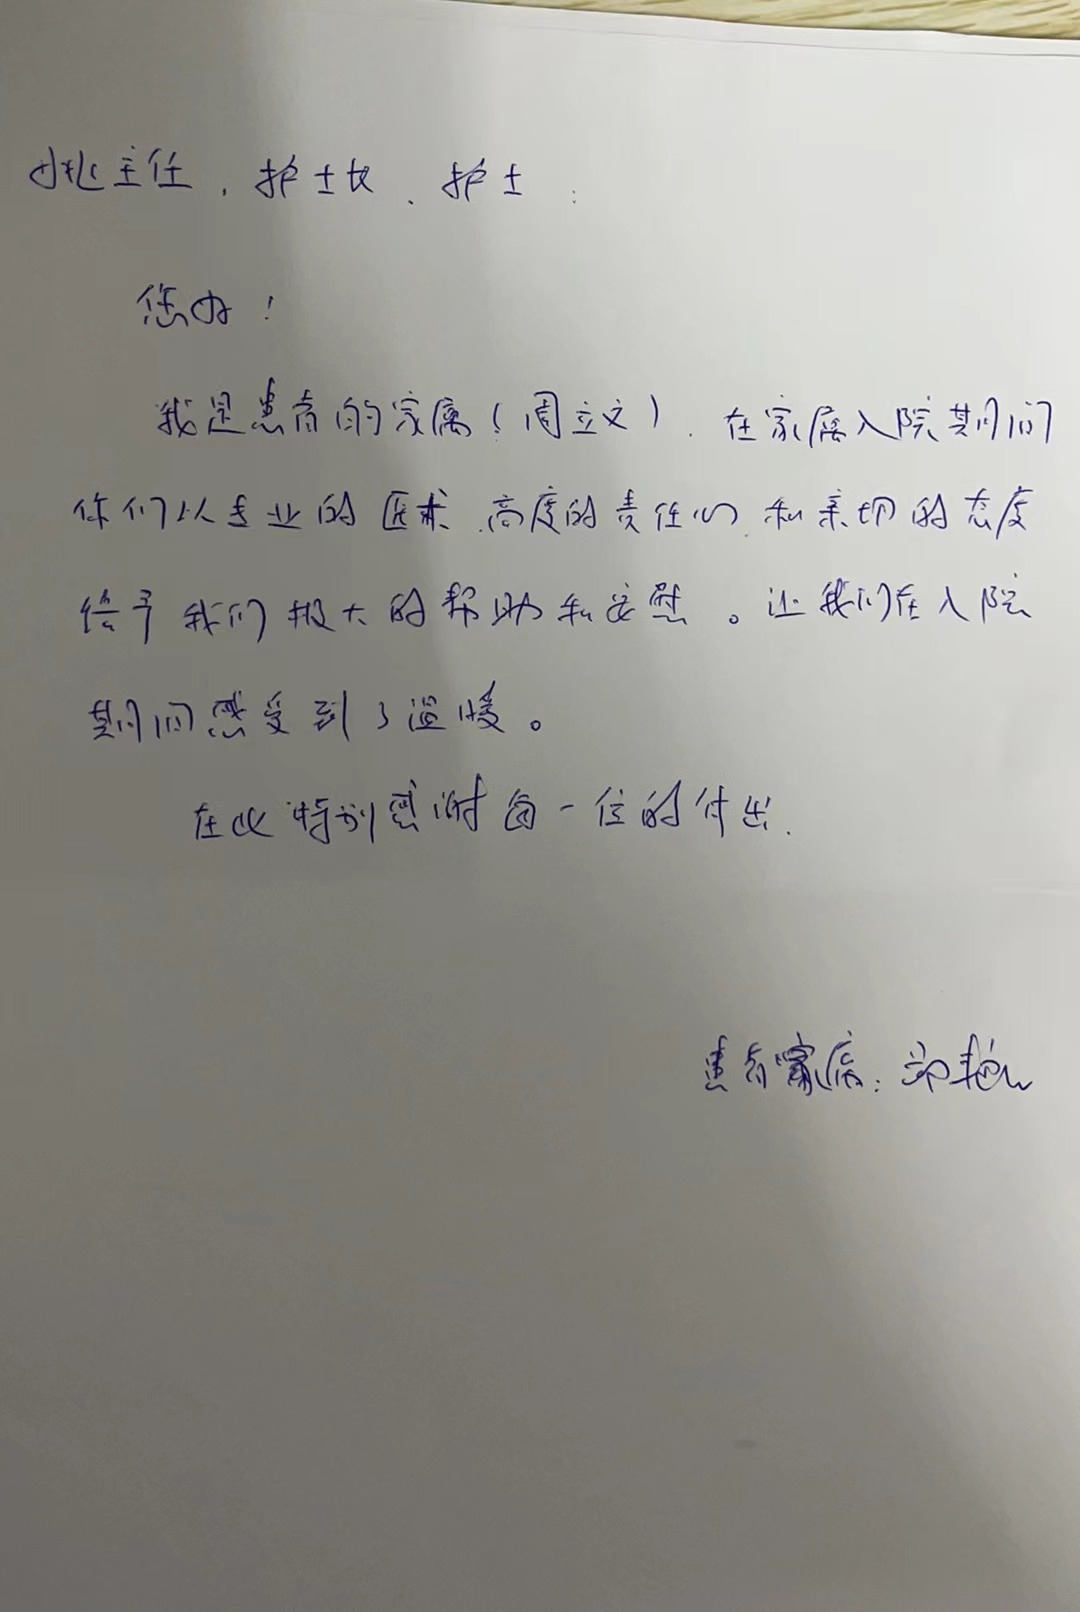 主任、护士长、护士:
您好!
我是患者的家属(周立文),在家属入院期间
你们以专业的医术、高度的责任心、和亲切的态度
给予我们极大的帮助和安慰。让我们在入院
期间感受到了温暖。
在此特别感谢每一位的付出.
患者家属: